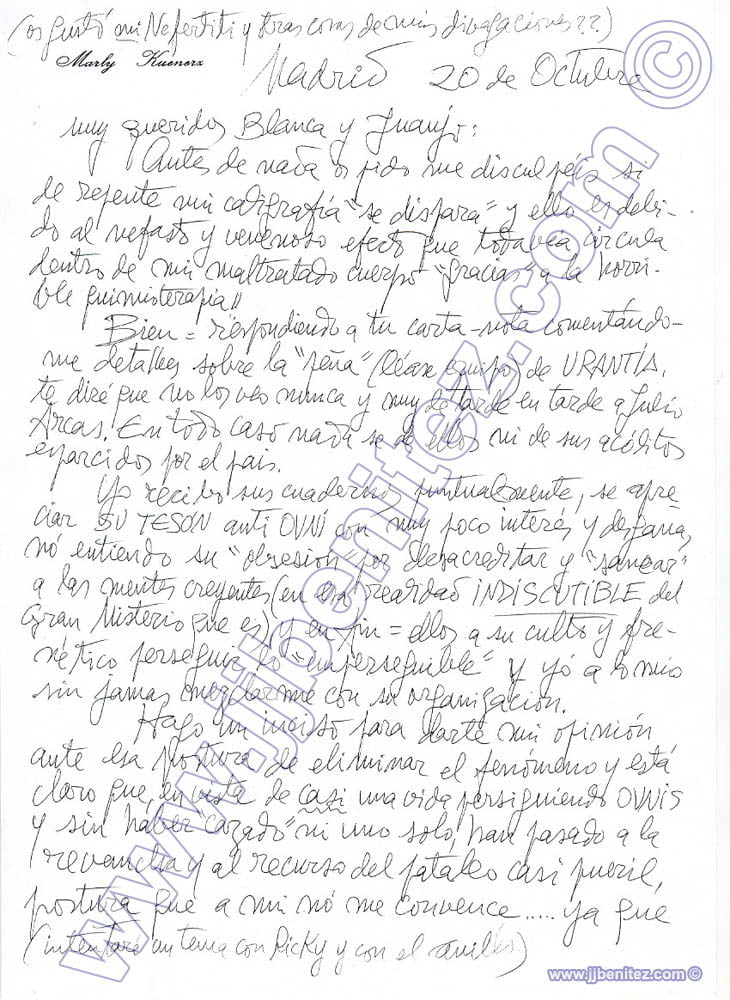 (os gustó mi Nefertiti y otras cosas de mis divagaciones??)
Marly Kuenerz
Madrid 20 de Octubre
Muy queridos Blanca y Juanjo:
Antes de nada os pido me disculpéis si
de repente mi caligrafía "se dispara" y ello es debi-
do al nefasto y venenoso efecto que todavía circula
dentro de mi maltratado cuerpo "gracias" a la horri-
ble quimioterapia"
Bien = respondiendo a tu carta-nota comentándo-
me detalles sobre la "peña" (léase equipo) de URANTIA.
te diré que no los veo nunca y muy de tarde en tarde a Julio
Arcas. En todo caso nada se de ellos ni de sus acólitos
esparcidos por el pais.
Yo recibo sus cuadernos puntualmente, se apre-
ciar SU TESÓN anti OVNI con muy poco interés y desgana,
nó entiendo su "obsesión" por desacreditar y "sanear"
a las mentes creyentes (en esa realidad INDISCUTIBLE del
Gran Misterio que es) y en fin = ellos a su culto y fre-
nético perseguir lo "imperseguible" y yó a lo mio
sin jamas mezclarme con su organización.
Hago un inciso para darte mi opinión
ante esa postura de eliminar el fenómeno y está
claro que, en vista de casi una vida persiguiendo OVNIS
y sin haber "cazado" ni uno solo, han pasado a la
revancha y al recurso del pataleo casi pueril,
postura que a mi nó me convence..... ya que
(intentaré un tema con Ricky y con el)
www.jjbenitez.com ©
www.jjbenitez.com ©